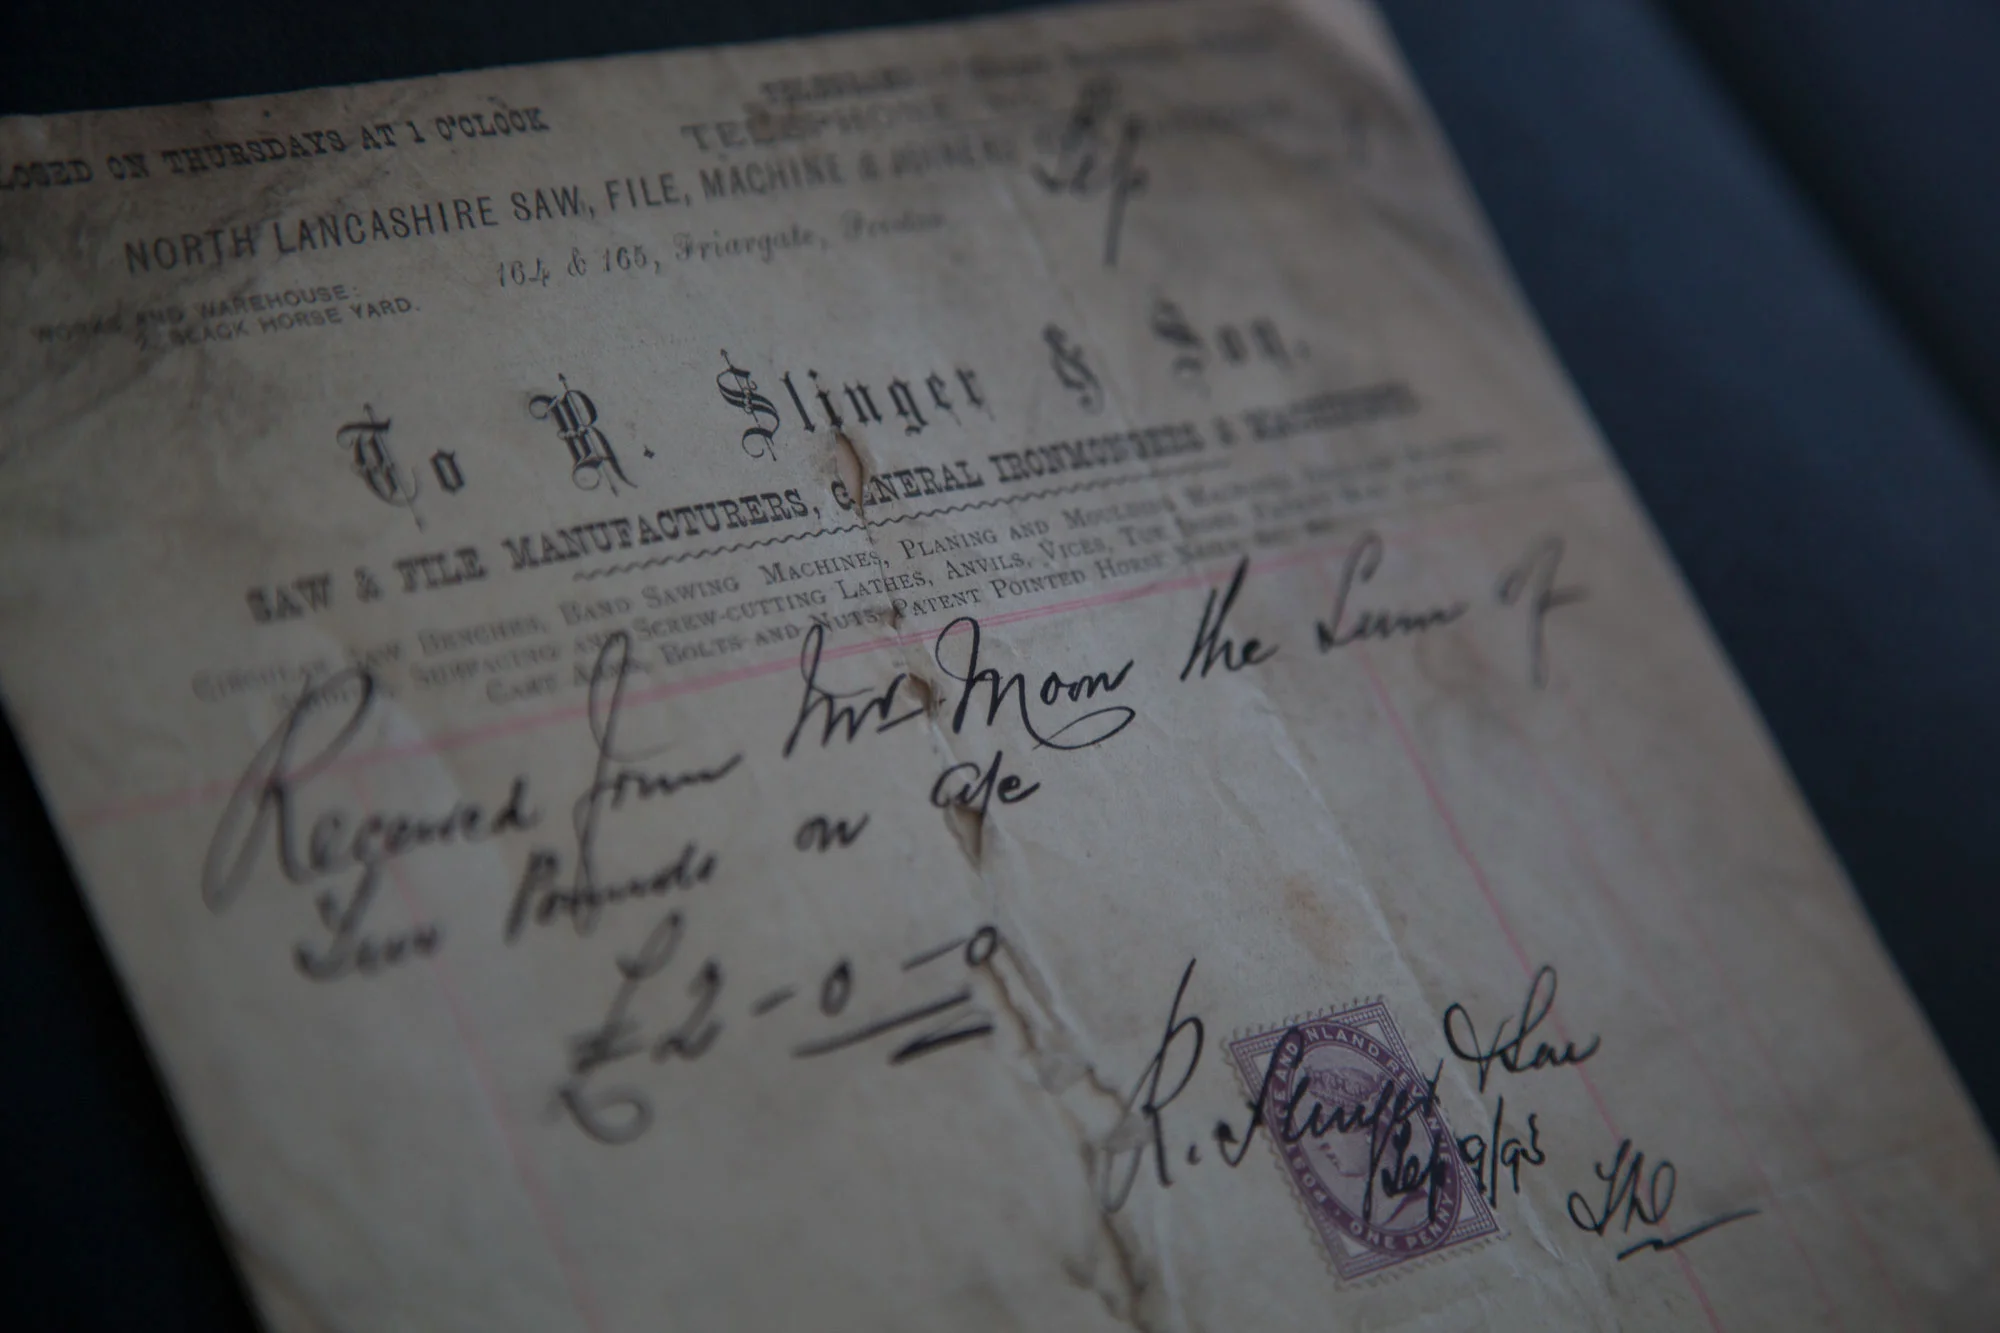 LOSED ON THURSDAYS AT 1 O'CLOCK
TELEPHONE
NORTH LANCASHIRE SAW, FILE, MACHINE &
Sep
164 & 165, Friargate, Preston
WORKS AND WAREHOUSE:
2, BLACK HORSE YARD.
To R. Slinger & Son.
SAW & FILE MANUFACTURERS, GENERAL IRONMONGERS & MACHINISTS
CIRCULAR SAW BENCHES, BAND SAWING MACHINES, PLANING AND MOULDING MACHINES,
SURFACING AND SCREW-CUTTING LATHES, ANVILS, VICES, TUE IRONS,
CART ARMS, BOLTS AND NUTS, PATENT POINTED HORSE NAILS,
Received from Mr Moon the Sum of
Two Pounds on a/c
£2-0-0
R. Slinger & Son
Sep 9/93
POSTAGE AND INLAND REVENUE
ONE PENNY